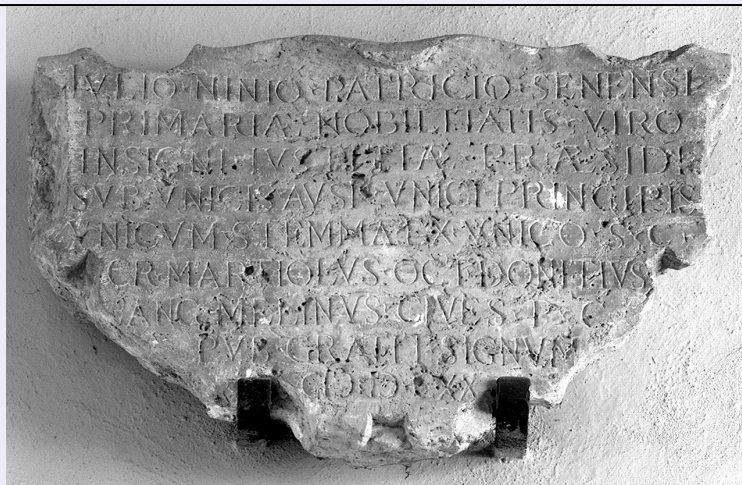 IVLIO·NINIO·PATRICIO·SENENSI
PRIMARIÆ·NOBILITATIS·VIRO
INSIGNI·PRÆSIDI
SVB·VNICIS·AVSP·VNICI·PRINCIPIS
VNICVM·STEMMA·EX·VNICO·S·C·
CR·MARTIOLVS·OCT·DONETIVS
ANG·MELINVS·CIVES·P·C·
PVB·GRATIT·SIGNVM